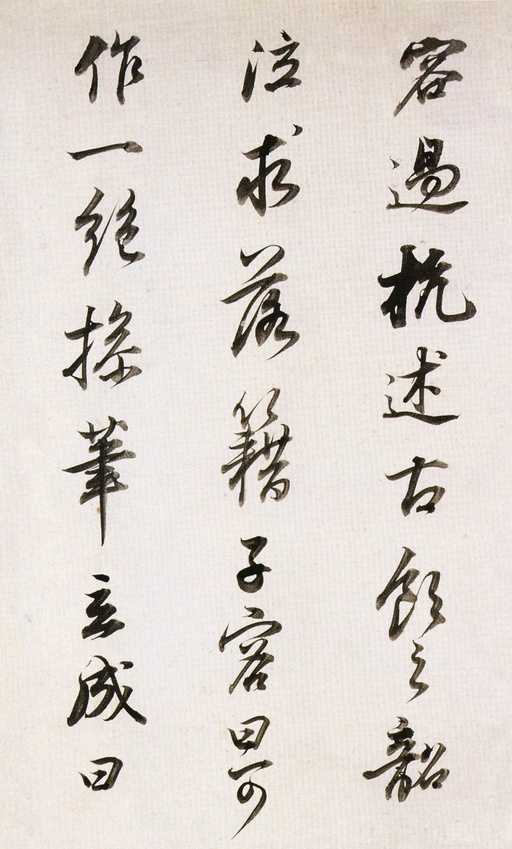 容過杭述古飲之韶
泣求落籍子容曰可
作一絕搽筆立成曰